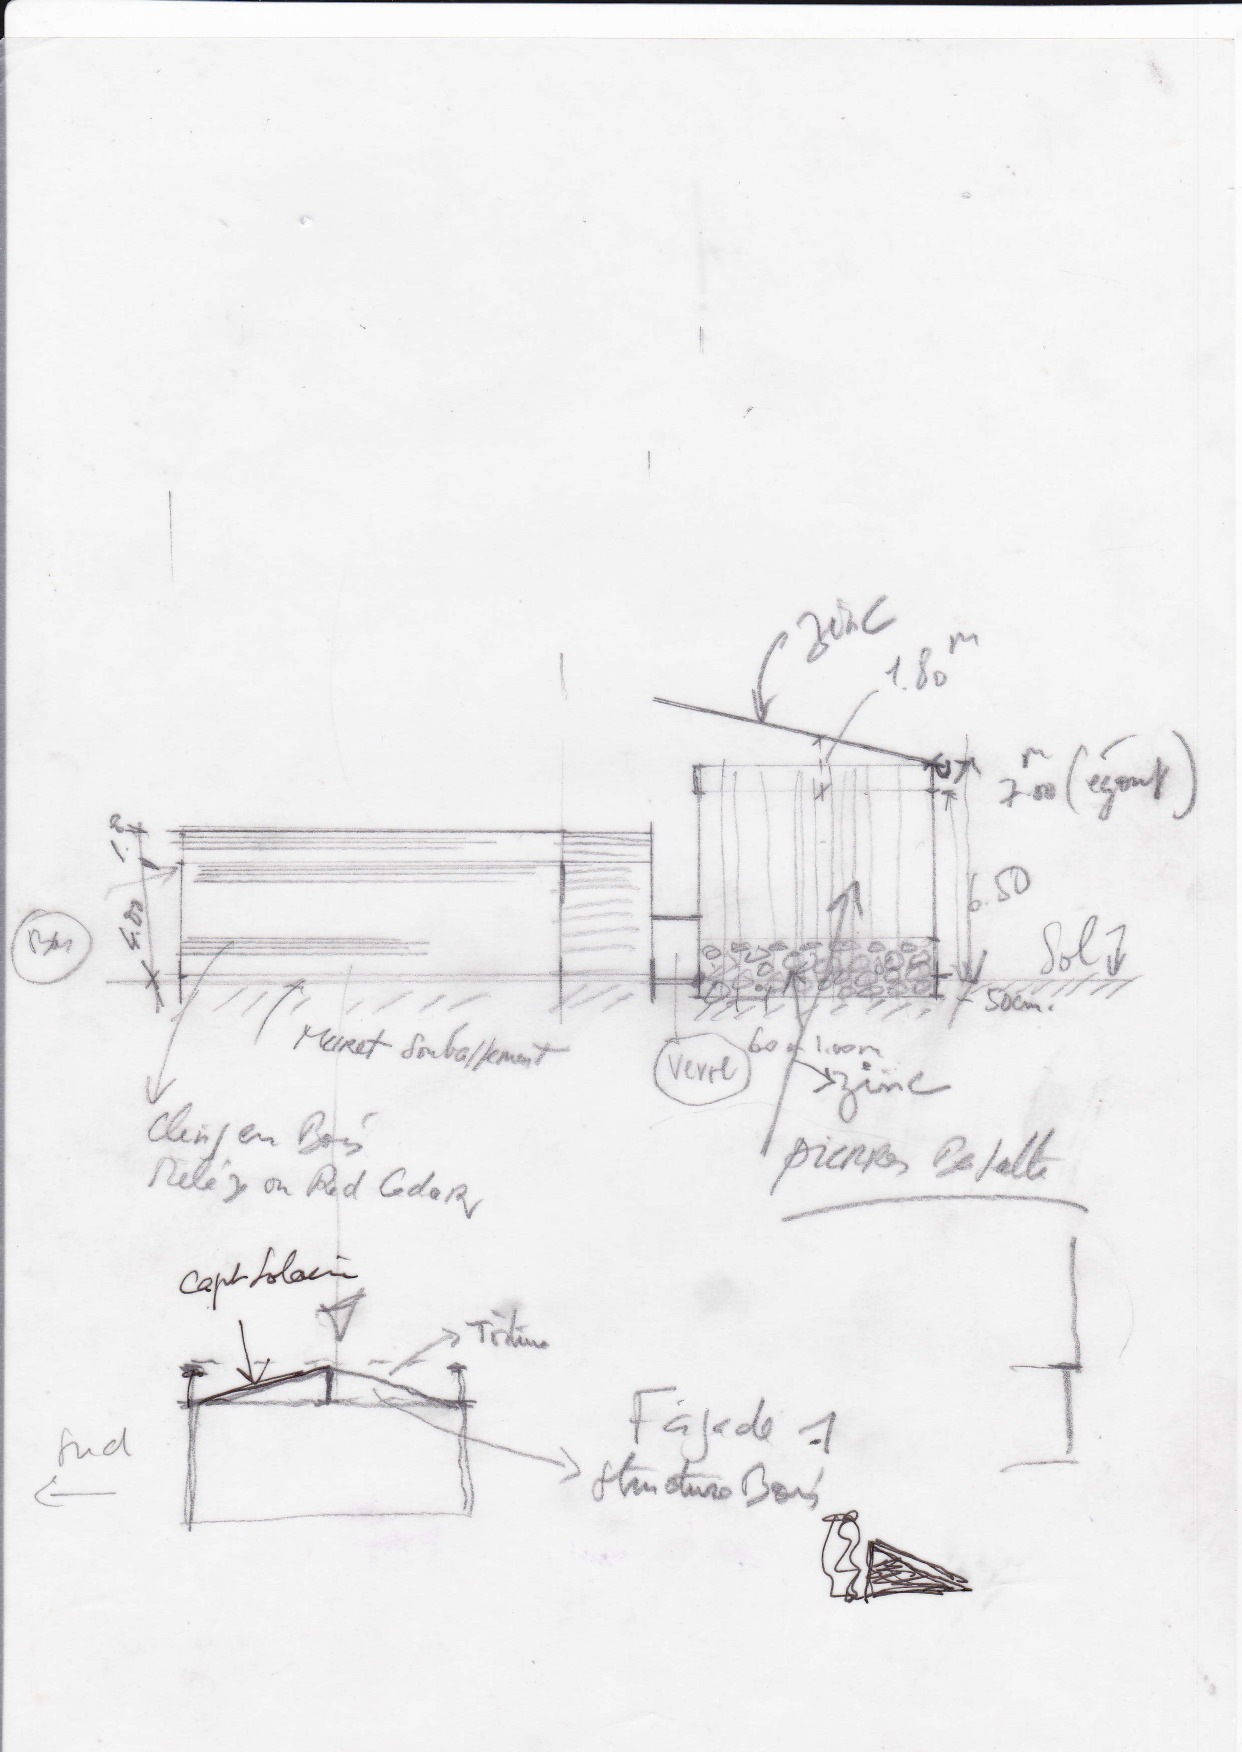 zinc
1.80 m
7 m 00 (égout)
4.00
6.50
Sol
- 50cm.
Muret Soubassement
Verre
60 à 1.00m
zinc
Clins en Bois
Mélèze ou Red Cedar
pierres Basalte
Capt Solaire
Toiture
Façade 1
Structure Bois
Sud